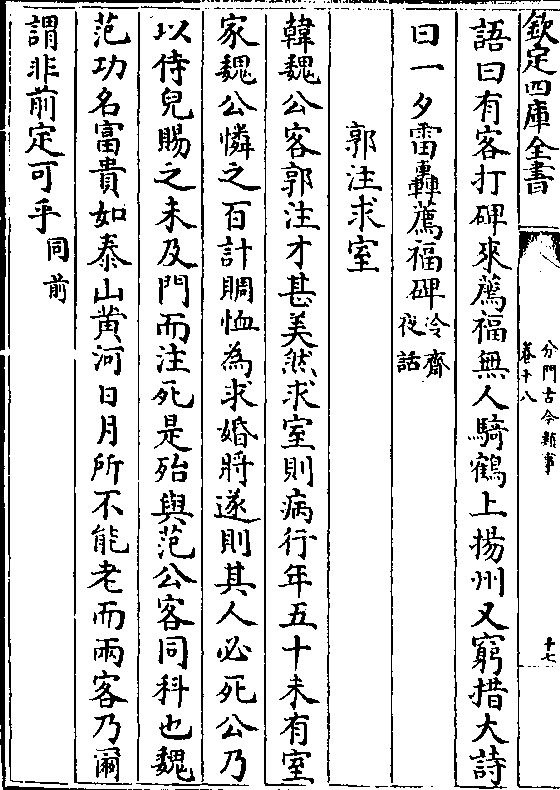 欽定四庫全書
分門古今類事
卷十八
十七
語曰有客打碑來薦福無人騎鶴上揚州又窮措大詩
曰一夕雷轟薦福碑冷齋夜話
郭注求室
韓魏公客郭注才甚美然求室則病行年五十未有室
家魏公憐之百計賙恤為求婚將遂則其人必死公乃
以侍兒賜之未及門而注死是殆與范公客同科也魏
范功名富貴如泰山黄河日月所不能老而兩客乃爾
謂非前定可乎同前